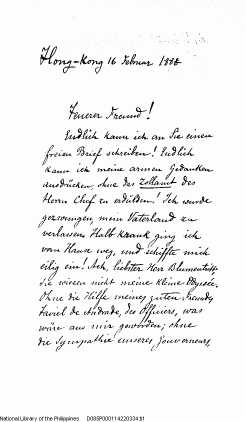 Hong-Kong 16 Februar 1888
Teuerer Freund!
Endlich kann ich an Sie einen
freien Brief schreiben! Endlich
kann ich meine armen Gedanken
ausdrücken, ohne das Zollamt des
Herrn Chef zu erdulden! Ich wurde
gezwungen, mein Vaterland zu
verlassen. Halb krank ging ich
vom Hause weg, und schiffte mich
eilig ein! Ach, liebster Herr Blumentritt,
Sie wissen nicht meine kleine Odyssée.
Ohne die Hilfe meines guten Freundes
Taviel de Andrade, des Officiers, was
wäre aus mir geworden; ohne
die Sympathie unseres Gouverneurs
National Library of the Philippines D08SP000114220334;61